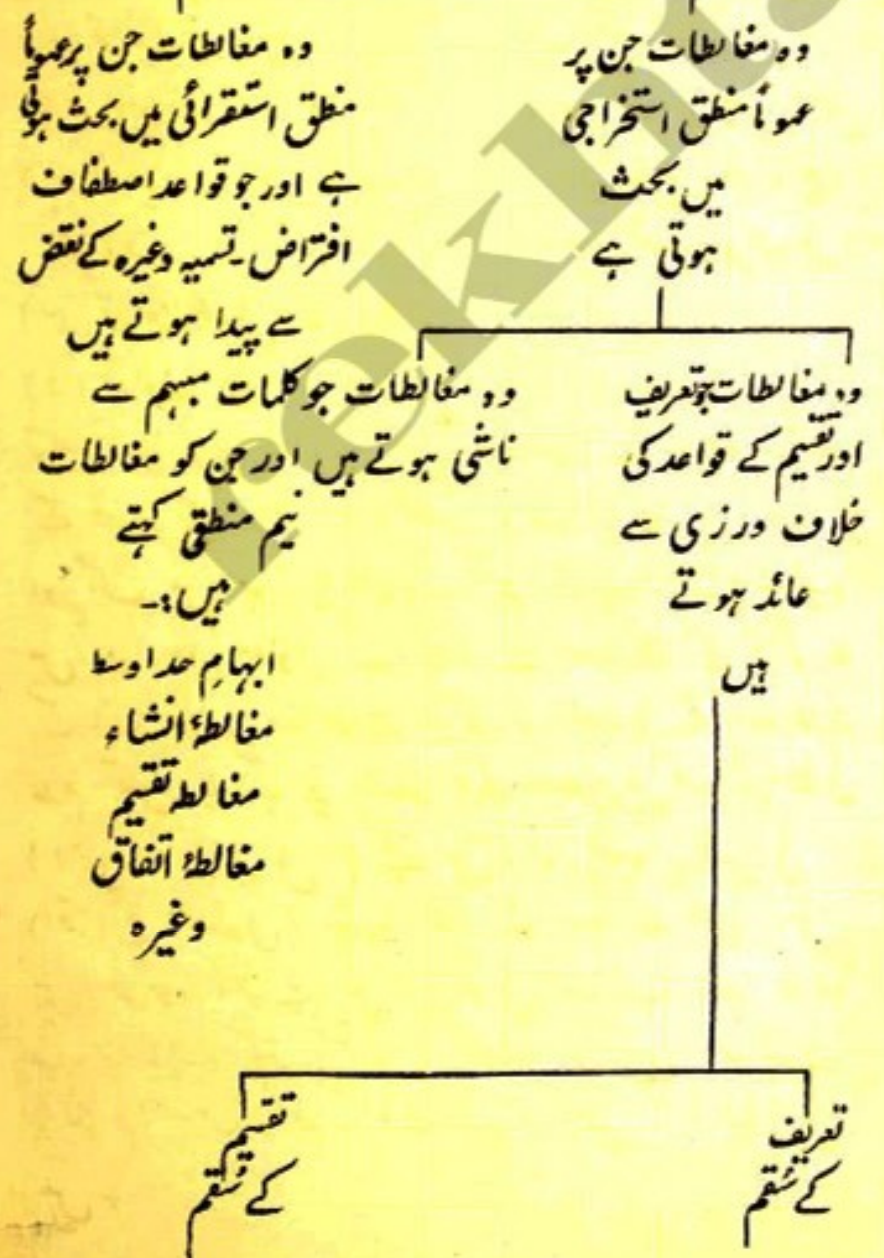 وہ مغالطات جن پر
عموماً منطق استخراجی
میں بحث
ہوتی ہے
وہ مغالطات جن پر عموماً
منطق استقرائی میں بحث ہوتی
ہے اور جو قواعد اصطفاف
افتراض۔ تسمیہ وغیرہ کے نقض
سے پیدا ہوتے ہیں
وہ مغالطات جو تعریف
اور تقسیم کے قواعد کی
خلاف ورزی سے
عائد ہوتے
ہیں
وہ مغالطات جو کلمات مبہم سے
ناشی ہوتے ہیں اور جن کو مغالطات
نیم منطقی کہتے
ہیں:۔
ابہامِ حد اوسط
مغالطۂ انشاء
مغالطہ تقسیم
مغالطۂ اتفاق
وغیرہ
تعریف
کے سُقم
تقسیم
کے سُقم
rekhta